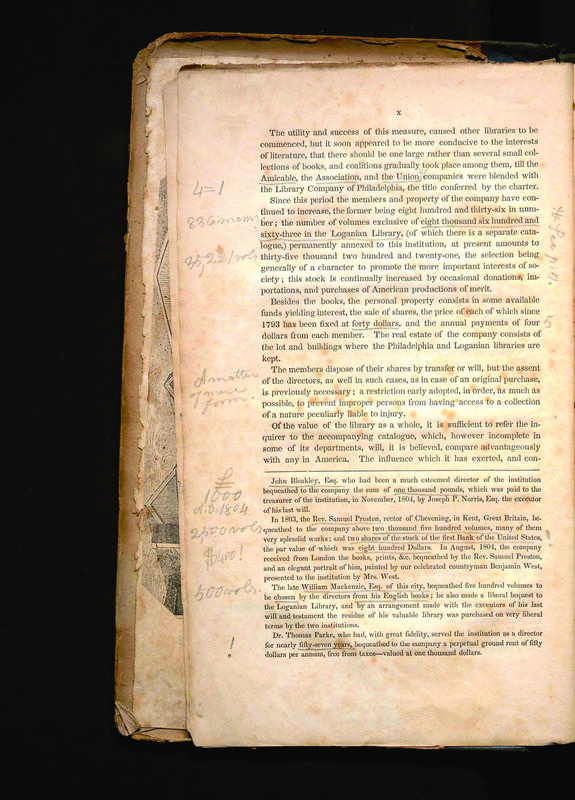 x
The utility and success of this measure, caused other libraries to be
commenced, but it soon appeared to be more conducive to the interests
of literature, that there should be one large rather than several small col-
lections of books, and coalitions gradually took place among them, till the
Amicable, the Association, and the Union companies were blended with
the Library Company of Philadelphia, the title conferred by the charter.
4=1
Since this period the members and property of the company have con-
tinued to increase, the former being eight hundred and thirty-six in num-
836 mem
ber; the number of volumes exclusive of eight thousand six hundred and
sixty-three in the Loganian Library, (of which there is a separate cata-
logue,) permanently annexed to this institution, at present amounts to
35,221 vols
thirty-five thousand two hundred and twenty-one, the selection being
generally of a character to promote the more important interests of so-
ciety; this stock is continually increased by occasional donations, im-
portations, and purchases of American productions of merit.
Besides the books, the personal property consists in some available
funds yielding interest, the sale of shares, the price of each of which since
1793 has been fixed at forty dollars, and the annual payments of four
dollars from each member. The real estate of the company consists of
the lot and buildings where the Philadelphia and Loganian libraries are
kept.
The members dispose of their shares by transfer or will, but the assent
A matter
of mere
form.
of the directors, as well in such cases, as in case of an original purchase,
is previously necessary; a restriction early adopted, in order, as much as
possible, to prevent improper persons from having access to a collection
of a nature peculiarly liable to injury.
Of the value of the library as a whole, it is sufficient to refer the in-
quirer to the accompanying catalogue, which, however incomplete in
some of its departments, will, it is believed, compare advantageously
with any in America. The influence which it has exerted, and con-
John Bleakley, Esq. who had been a much esteemed director of the institution
£
1000
bequeathed to the company the sum of one thousand pounds, which was paid to the
treasurer of the institution, in November, 1804, by Joseph P. Norris, Esq. the executor
of his last will.
1804
In 1803, the Rev. Samuel Preston, rector of Chevening, in Kent, Great Britain, be-
2500 vols
queathed to the company above two thousand five hundred volumes, many of them
very splendid works; and two shares of the stock of the first Bank of the United States,
$400!
the par value of which was eight hundred Dollars. In August, 1804, the company
received from London the books, prints, &c. bequeathed by the Rev. Samuel Preston,
and an elegant portrait of him, painted by our celebrated countryman Benjamin West,
presented to the institution by Mrs. West.
500 vols.
The late William Mackenzie, Esq. of this city, bequeathed five hundred volumes to
be chosen by the directors from his English books; he also made a liberal bequest to
the Loganian Library, and by an arrangement made with the executors of his last
will and testament the residue of his valuable library was purchased on very liberal
terms by the two institutions.
Dr. Thomas Parke, who had, with great fidelity, served the institution as a director
!
for nearly fifty-seven years, bequeathed to the company a perpetual ground rent of fifty
dollars per annum, free from taxes—valued at one thousand dollars.